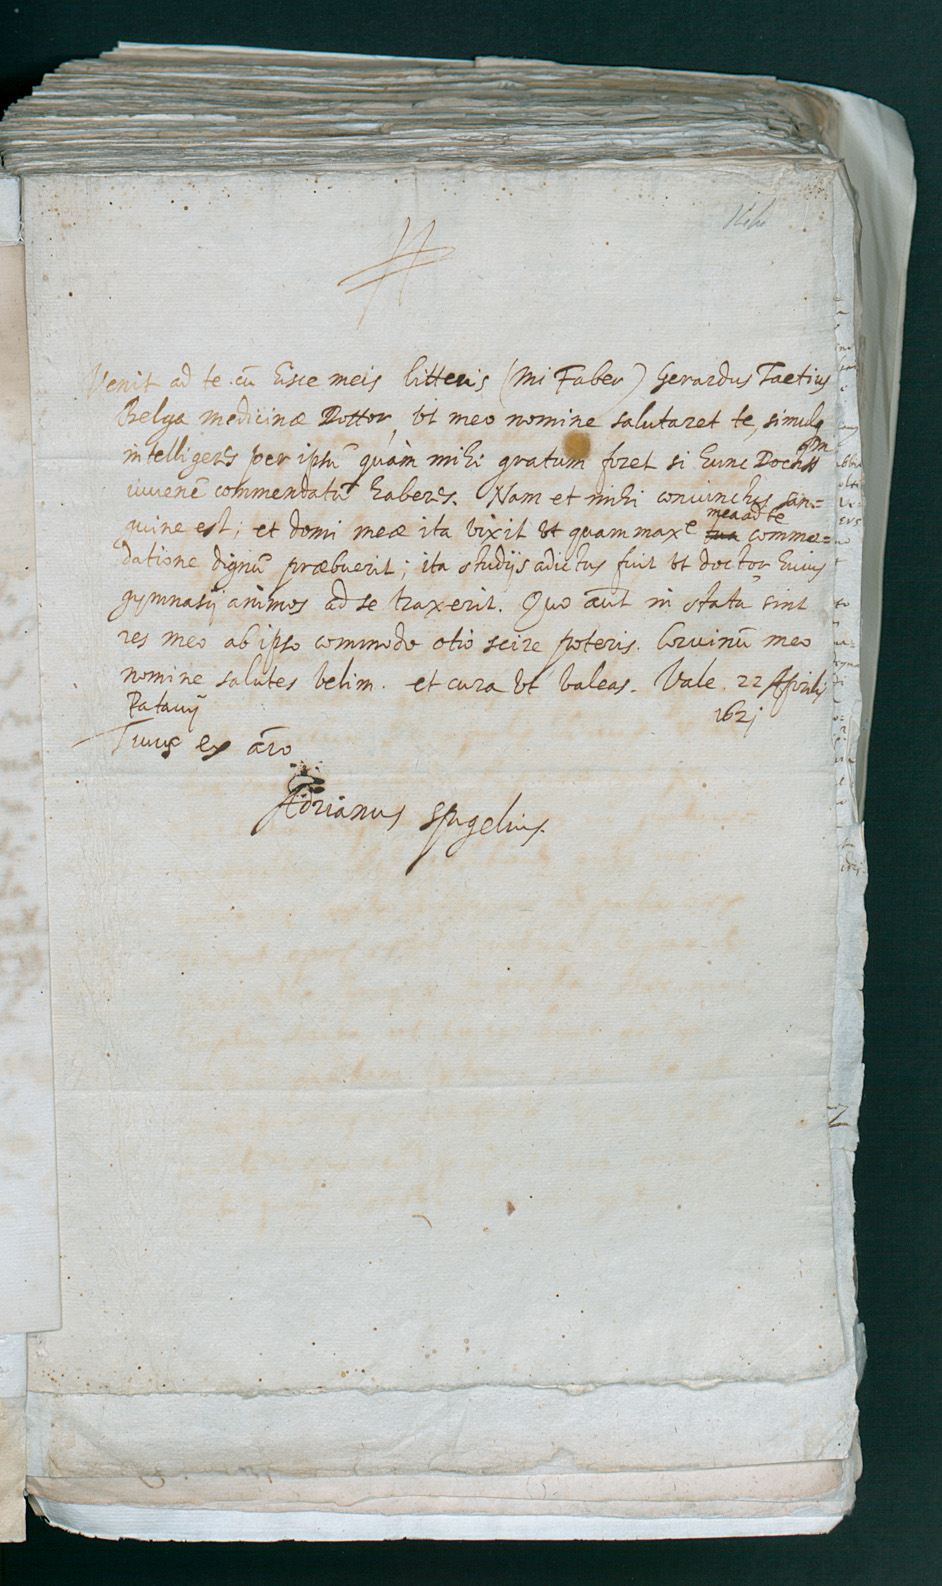 Venit ad te cũ hisce meis litteris (mi Faber) Gerardus Taetius
Belga medicinæ Doctor, vt meo nomine salutaret te, simulq
intelligeres per ipsũ quàm mihi gratum foret si hunc Doctissm
iuuenẽ commendatũ haberes. Nam et mihi coniunctus san=
guine est; et domi meæ ita vixit vt quam maxe mea ad te comme=
datione dignũ præbuerit; ita studijs adictus fuit vt doctor huius
gymnasij animos ad se traxerit. Quo aũt in statu sint
res meo ab ipso commodo otio scire poteris. Corvinũ meo
nomine salutes velim. et cura vt valeas. Vale. 22 Aprilis
Patauij 1621
Tuus ex aĩo
Adrianus Spigelius.